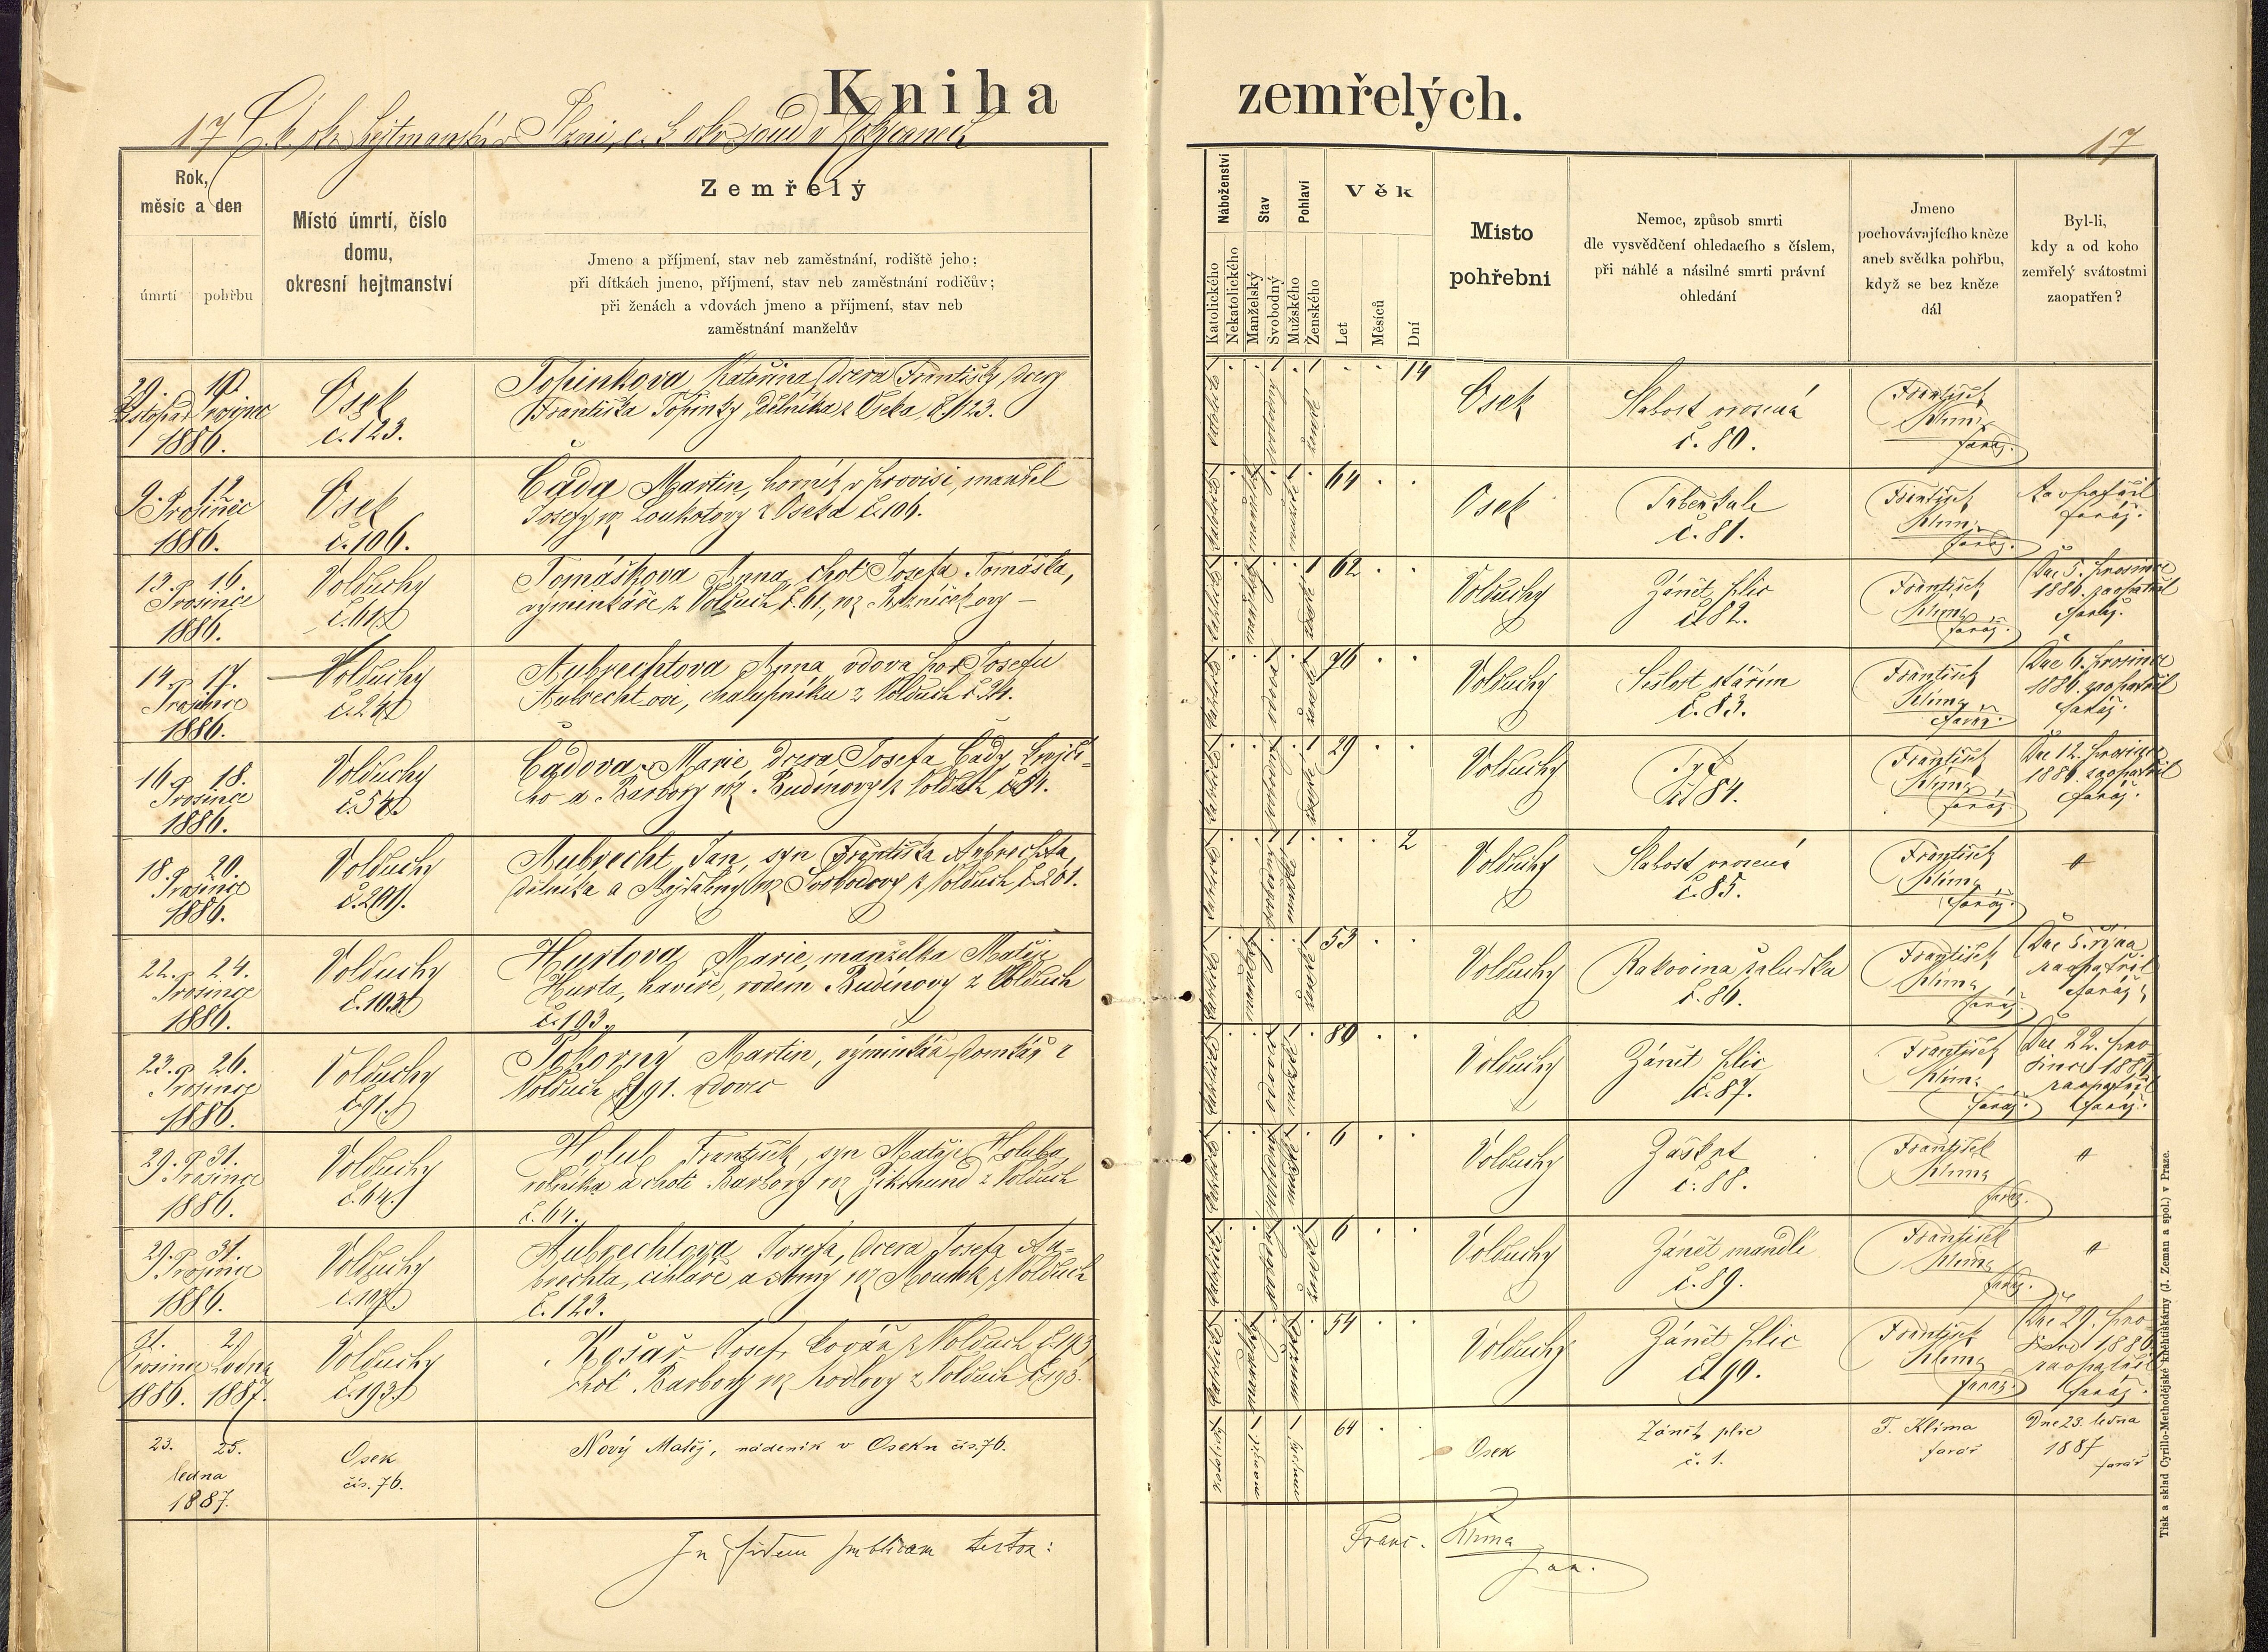 Kniha zemřelých.
17 C. k. okr. hejtmanství v Plzni, c. k. okr. soud v Rokycanech
17
Rok,
měsíc a den
úmrtí
pohřbu
Místo úmrtí, číslo
domu,
okresní hejtmanství
Zemřelý
Jmeno a příjmení, stav neb zaměstnání, rodiště jeho;
při dítkách jmeno, příjmení, stav neb zaměstnání rodičův;
při ženách a vdovách jmeno a přijmení, stav neb
zaměstnání manželův
Náboženství
Katolického
Nekatolického
Stav
Manželský
Svobodný
Pohlaví
Mužského
Ženského
Věk
Let
Měsíců
Dní
Místo
pohřební
Nemoc, způsob smrti
dle vysvědčení ohledacího s číslem,
při náhlé a násilné smrti právní
ohledání
Jmeno
pochovávajícího knèze
aneb svědka pohřbu,
když se bez kněze
dál
Byl-li,
kdy a od koho
zemřelý svátostmi
zaopatřen?
1886.
Osek
č. 123.
Topinkova Kateřina, dcera Františky dcery
Františka Topinky, dělníka z Oseka č. 123.
14
Osek
Slabost vrozená
č. 80.
František
Klima
farář.
9. 12.
Prosince
1886.
Osek
č. 106.
Čada Martin, horník v provisi, manžel
Josefy roz. Loukotovy z Oseka č. 106.
64
Osek
Tuberkule
č. 81.
František
Klima
farář.
Zaopatřil
farář.
13. 16.
Prosince
1886.
Volduchy
č. 61.
Tomáškova Anna, choť Josefa Tomáška,
výminkáře z Volduch č. 61, roz.
62
Volduchy
Zánět plic
č. 82.
František
Klima
farář.
Dne 5. prosince
1886. zaopatřil
farář.
14. 17.
Prosince
1886.
Volduchy
Aubrechtova Anna, vdova po Josefu
Aubrechtovi, chalupníku z Volduch
76
Volduchy
Sešlost stářím
č. 83.
František
Klima
farář.
Dne 6. prosince
1886. zaopatřil
farář.
16. 18.
Prosince
1886.
Volduchy
č. 54.
Čadova Marie, dcera Josefa Čady, krejčí-
ho a Barbory roz. Rudinovy z Volduch
29
Volduchy
č. 84.
František
Klima
farář.
Dne 12. prosince
1886 zaopatřil
farář.
18. 20.
Prosince
1886.
Volduchy
č. 201.
Aubrecht Jan, syn Františka Aubrechta,
dělníka a Majdaleny roz. Svobodovy z Volduch č. 201.
2
Volduchy
Slabost vrozená
č. 85.
František
Klima
farář.
22. 24.
Prosince
1886.
Volduchy
č. 103.
Hurtova Marie, manželka Matěje
Hurta, havíře, rodem Rudinovy z Volduch
č. 103.
53
Volduchy
Rakovina žaludku
č. 86.
František
Klima
farář.
Dne 5. října
zaopatřil
farář.
23. 26.
Prosince
1886.
Volduchy
č. 91.
Pokorný Martin, výminkář, domkář z
Volduch č. 91. vdovec
80
Volduchy
Zánět plic
č. 87.
František
Klima
farář.
Dne 22. pro-
since 1886
zaopatřil
farář.
29. 31.
Prosince
1886.
Volduchy
č. 64.
Holub František, syn Matěje Holuba,
rolníka a choti Barbory roz. Zikmund z Volduch
č. 64.
6
Volduchy
Záškrt
č. 88.
František
Klima
farář.
29. 31.
Prosince
1886.
Volduchy
Aubrechtova Josefa, dcera Josefa Au-
brechta, cihláře a Anny roz. Mourek z Volduch
č. 123.
6
Volduchy
Zánět mandlí
č. 89.
František
Klima
farář.
31. 2.
Prosince Ledna
1886. 1887.
Volduchy
č. 193.
Košař Josef, kovář z Volduch č. 193,
choť Barbory roz. Hodlovy z Volduch č. 193.
54
Volduchy
Zánět plic
č. 90.
František
Klima
farář.
Dne 29. pro-
since 1886
zaopatřil
farář.
23. 25.
ledna
1887.
Osek
čís. 76.
Nový Matěj, nádeník v Oseku čís. 76.
64
Osek
Zánět plic
č. 1.
F. Klíma
farář
Dne 23. ledna
1887
farář
In fidem publicam testor:
Franc. Klima
far.
Tisk a sklad Cyrillo-Methodějské knihtiskárny (J. Zeman a spol.) v Praze.